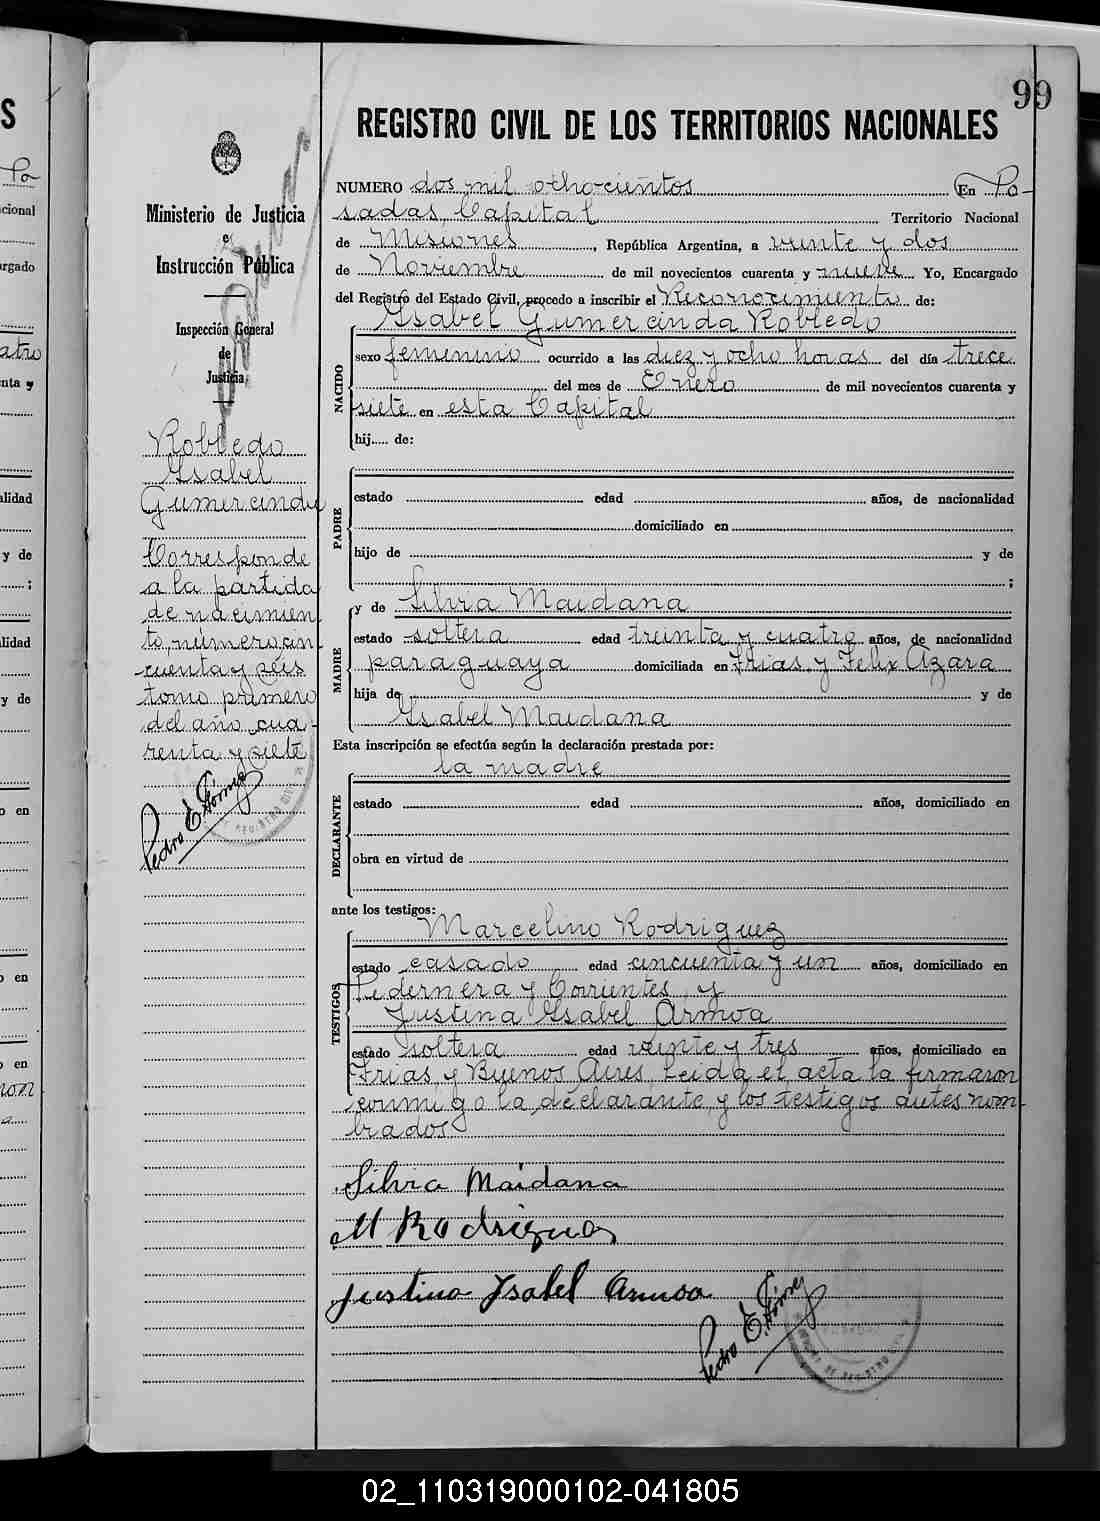 99
REGISTRO CIVIL DE LOS TERRITORIOS NACIONALES
Ministerio de Justicia
e
Instrucción Pública
Inspección General
de
Justicia
Robledo
Ysabel
Gumercinda
Corresponde
a la partida
de nacimien
to número cin
cuenta y seis
tomo primero
del año cua-
renta y siete
NUMERO dos mil ochocientos En Po-
sadas Capital Territorio Nacional
de Misiones, República Argentina, a veinte y dos
de Noviembre de mil novecientos cuarenta y nueve Yo, Encargado
del Registro del Estado Civil, procedo a inscribir el Reconocimiento de:
NACIDO
Ysabel Gumercinda Robledo
sexo femenino ocurrido a las diez y ocho horas del día trece
del mes de Enero de mil novecientos cuarenta y
siete en esta Capital
hij..... de:
PADRE
estado edad años, de nacionalidad
domiciliado en
hijo de y de
;
MADRE
y de Silvia Maidana
estado soltera edad treinta y cuatro años, de nacionalidad
paraguaya domiciliada en Frias y Felix Azara
hija de y de
Ysabel Maidana
Esta inscripción se efectúa según la declaración prestada por:
la madre
DECLARANTE
estado edad años, domiciliado en
obra en virtud de
ante los testigos:
TESTIGOS
Marcelino Rodriguez
estado casado edad cincuenta y un años, domiciliado en
Pedernera y Corrientes, y
Justina Ysabel Armoa
estado soltera edad veinte y tres años, domiciliado en
Frias y Buenos Aires Leida el acta la firmaron
conmigo la declarante y los testigos antes nom-
brados
Silvia Maidana
M Rodriguez
Justina Ysabel Armoa
02_110319000102-041805